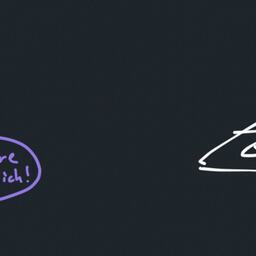 re
ich!